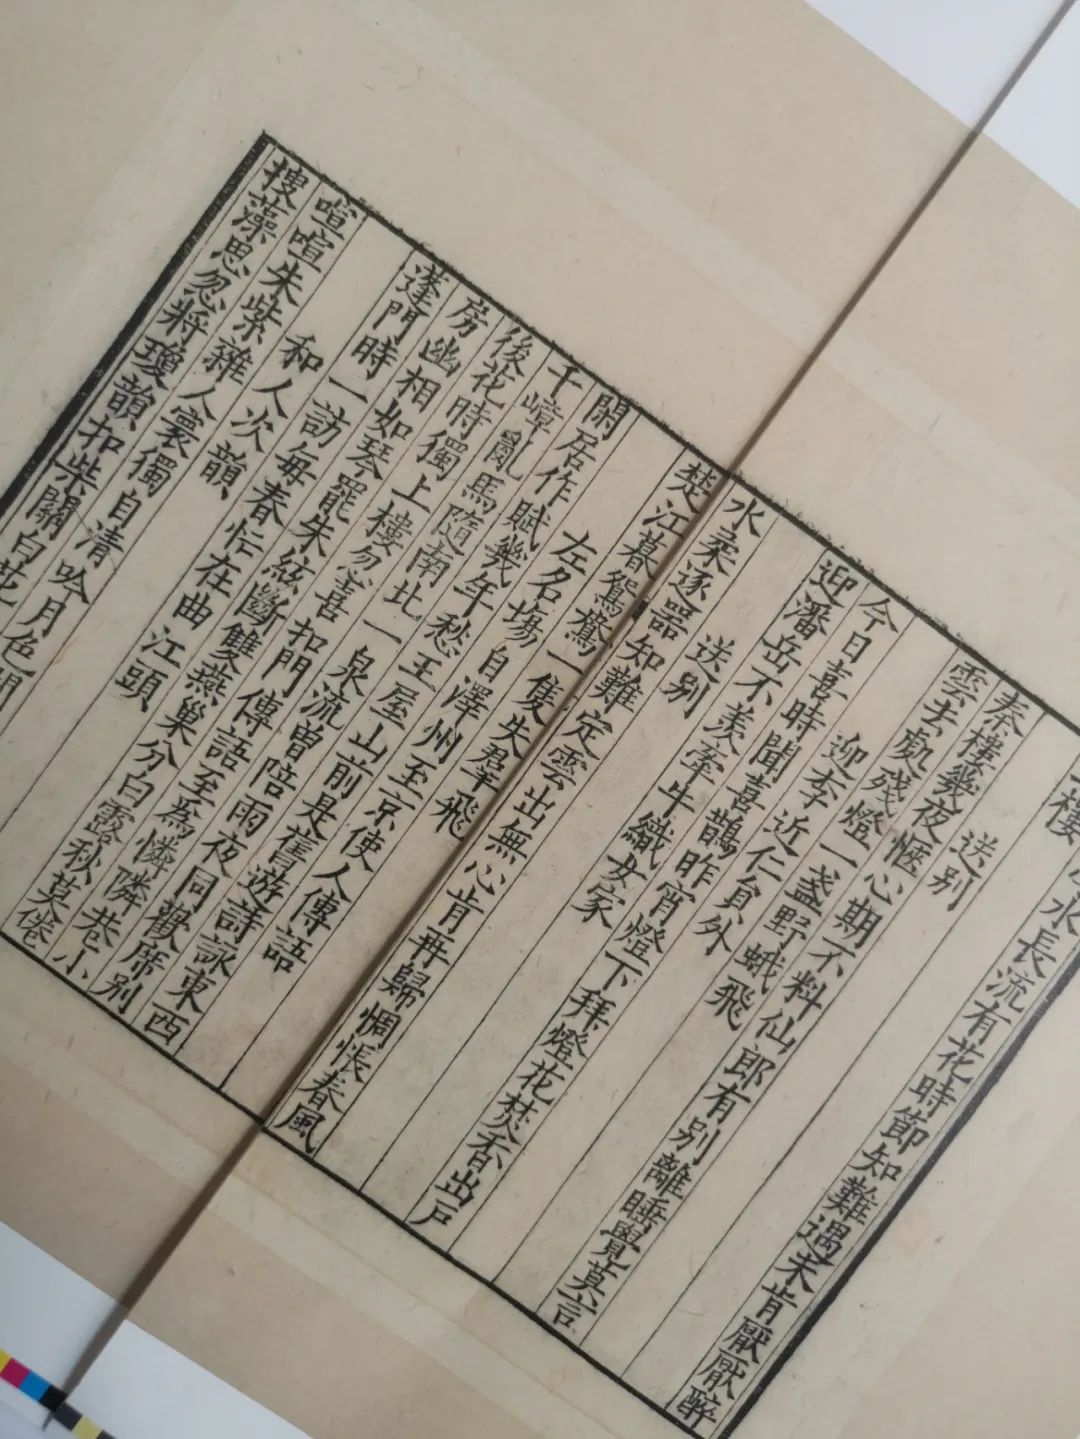 水長流有花時節知難遇未肯厭厭醉
樓
送別
秦樓幾夜愜心期不料仙郎有別離睡覺莫言
雲去處殘燈一盞野蛾飛
迎李近仁員外
今日喜時聞喜鵲昨宵燈下拜燈花焚香出戶
迎潘岳不羨牽牛織女家
送別
水柔逐器知難定雲出無心肯再歸惆悵春風
楚江暮鴛鴦一隻失羣飛
左名場自澤州至京使人傳語
閑居作賦幾年愁王屋山前是舊遊詩詠東西
千嶂亂馬隨南北一泉流曾陪雨夜同歡席別
後花時獨上樓忽喜扣門傳語至為憐隣巷小
房幽相如琴罷朱絃斷雙燕巢分白露秋莫倦
蓬門時一訪每春忙在曲江頭
和人次韻
喧喧朱紫雜人寰獨自清吟月色
搜藻思忽將瓊韻扣柴關白花